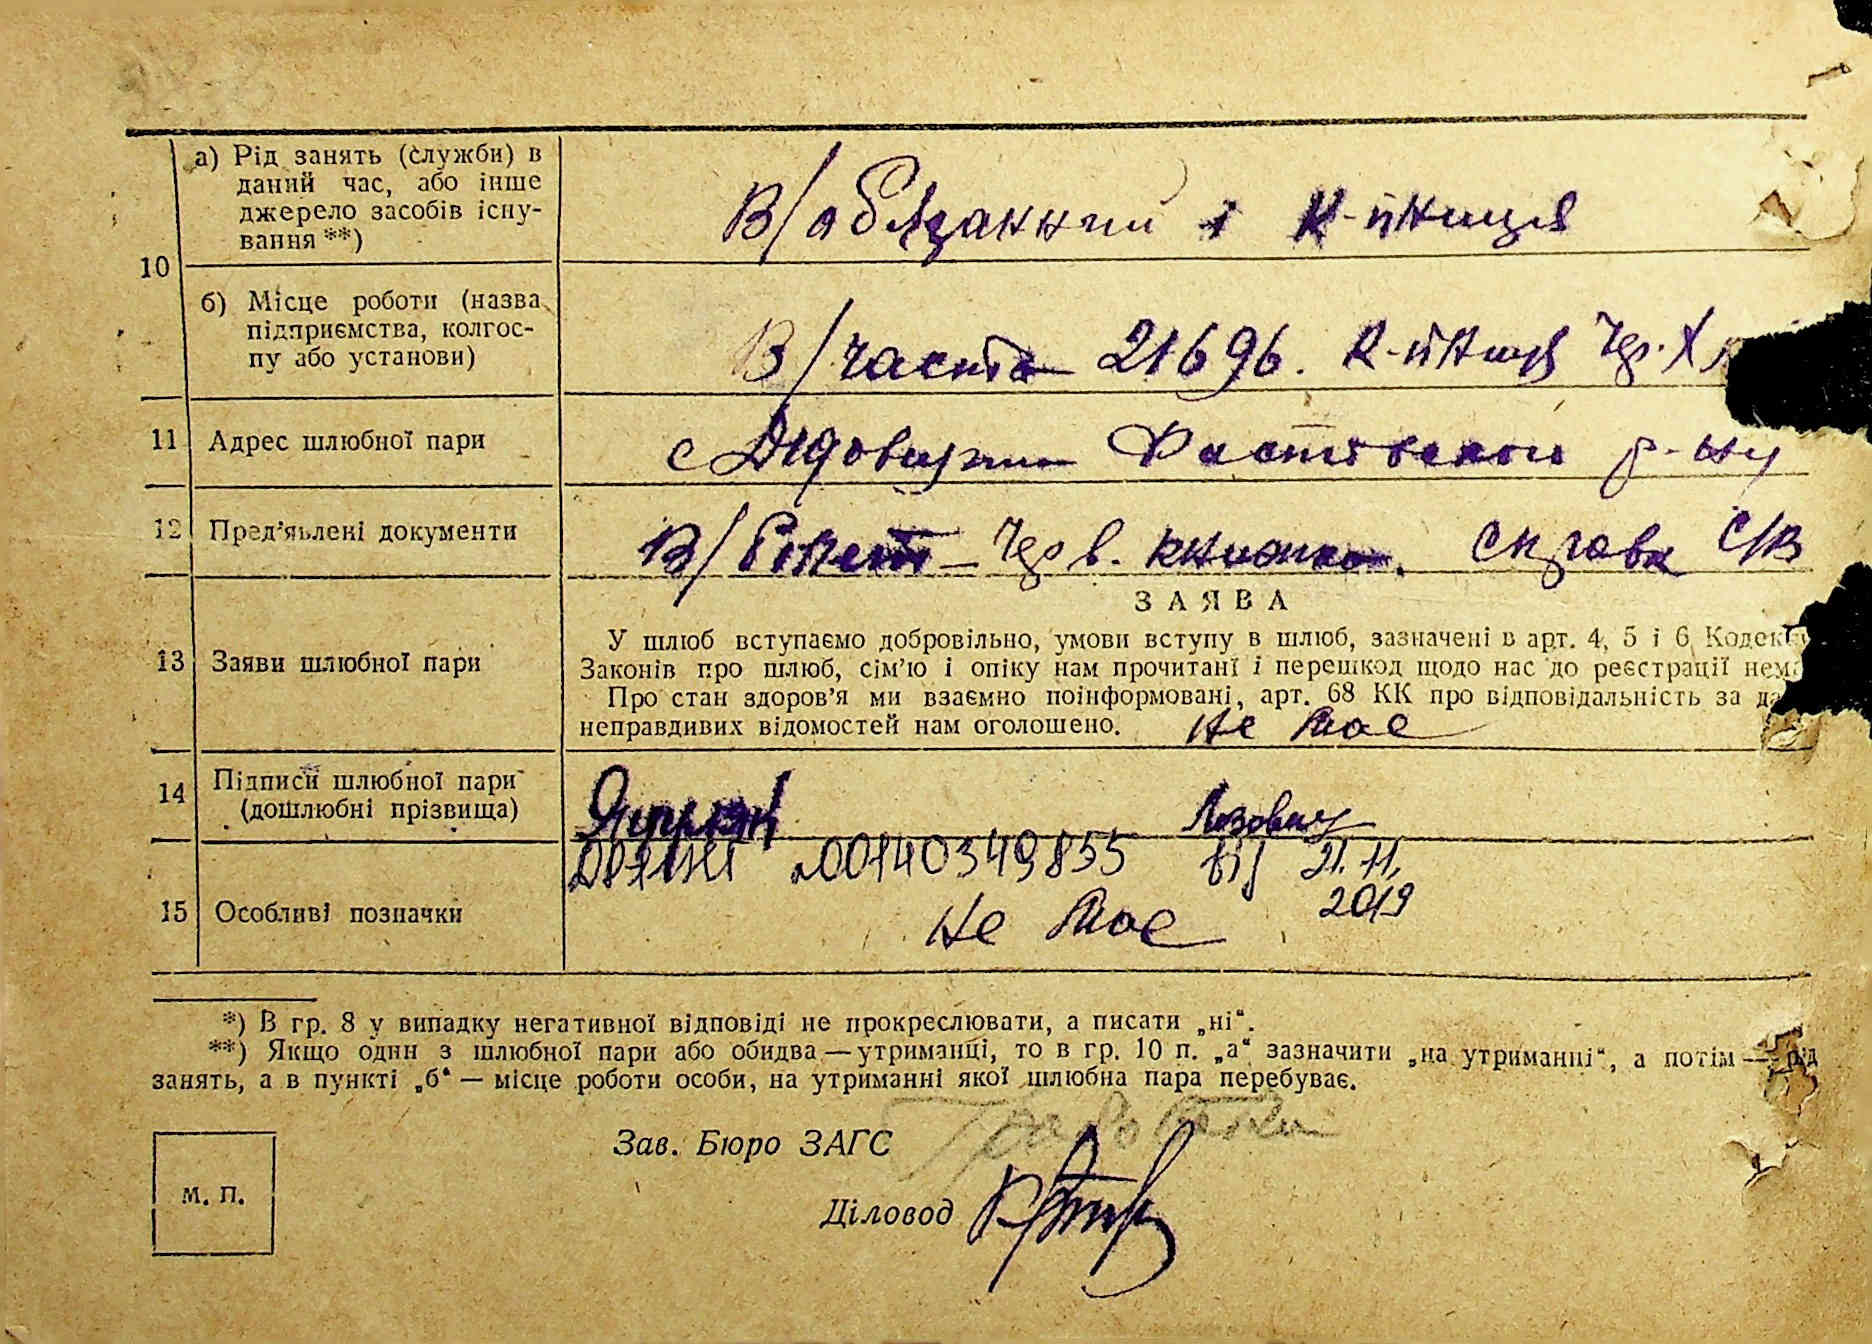 10
а) Рід занять (служби) в
даний час, або інше
джерело засобів існу-
вання **)
В/обязанний і к-пниця
б) Місце роботи (назва
підприємства, колгос-
пу або установи)
В/часта 21696. К-пниця Чер. Х
11 Адрес шлюбної пари
с Дідовщини Фастовской р-ну
12 Пред'явлені документи
В/билет Черв. книжка. Справка С/В
ЗАЯВА
13 Заяви шлюбної пари
У шлюб вступаємо добровільно, умови вступу в шлюб, зазначені в арт. 4, 5 і 6 Кодек
Законів про шлюб, сім'ю і опіку нам прочитані і перешкод щодо нас до реєстрації нема
Про стан здоров'я ми взаємно поінформовані, арт. 68 КК про відповідальність за да
неправдивих відомостей нам оголошено. Не має
14 Підписи шлюбної пари
(дошлюбні прізвища)
Лозовиу
00140349855 від 21.11.
2019
15 Особливі позначки
Не має
*) В гр. 8 у випадку негативної відповіді не прокреслювати, а писати „ні“.
**) Якщо один з шлюбної пари або обидва—утриманці, то в гр. 10 п. „а“ зазначити „на утриманні“, а потім — рід
занять, а в пункті „б“ — місце роботи особи, на утриманні якої шлюбна пара перебуває.
Зав. Бюро ЗАГС
м. п.
Діловод